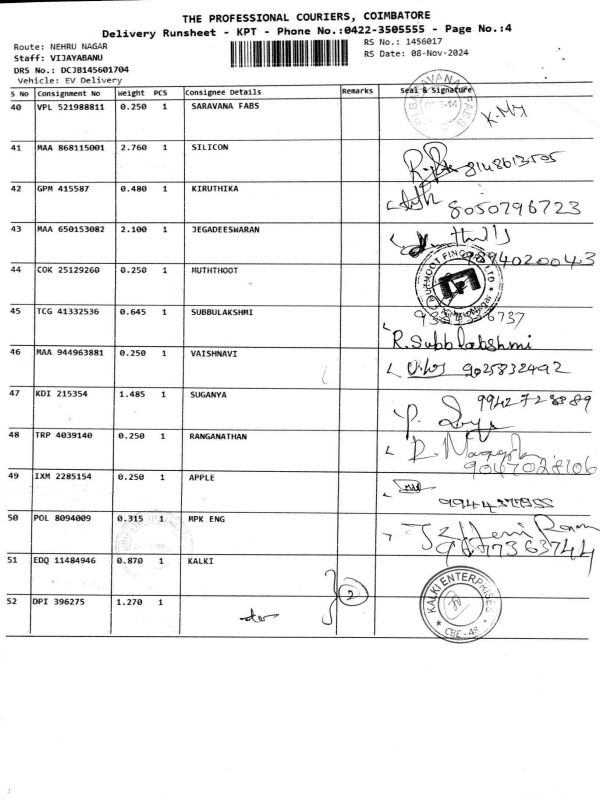 THE PROFESSIONAL COURIERS, COIMBATORE
Delivery Runsheet - KPT - Phone No.:0422-3505555 - Page No.:4
Route: NEHRU NAGAR
RS No.: 1456017
Staff: VIJAYABANU
RS Date: 08-Nov-2024
DRS No.: DCJB145601704
Vehicle: EV Delivery
S No Consignment No Weight PCS Consignee Details Remarks Seal & Signature
40 VPL 521988811 0.250 1 SARAVANA FABS
41 MAA 868115001 2.760 1 SILICON
42 GPM 415587 0.480 1 KIRUTHIKA 8050796723
43 MAA 650153082 2.100 1 JEGADEESWARAN
44 COK 25129260 0.250 1 MUTHTHOOT
45 TCG 41332536 0.645 1 SUBBULAKSHMI
R. Subbulakshmi
46 MAA 944963881 0.250 1 VAISHNAVI 9025832492
47 KDI 215354 1.485 1 SUGANYA
48 TRP 4039140 0.250 1 RANGANATHAN
49 IXM 2285154 0.250 1 APPLE
50 POL 8094009 0.315 1 MPK ENG
51 EDQ 11484946 0.870 1 KALKI
KALKI ENTERPRISES
CBE - 48
52 DPI 396275 1.270 1 2